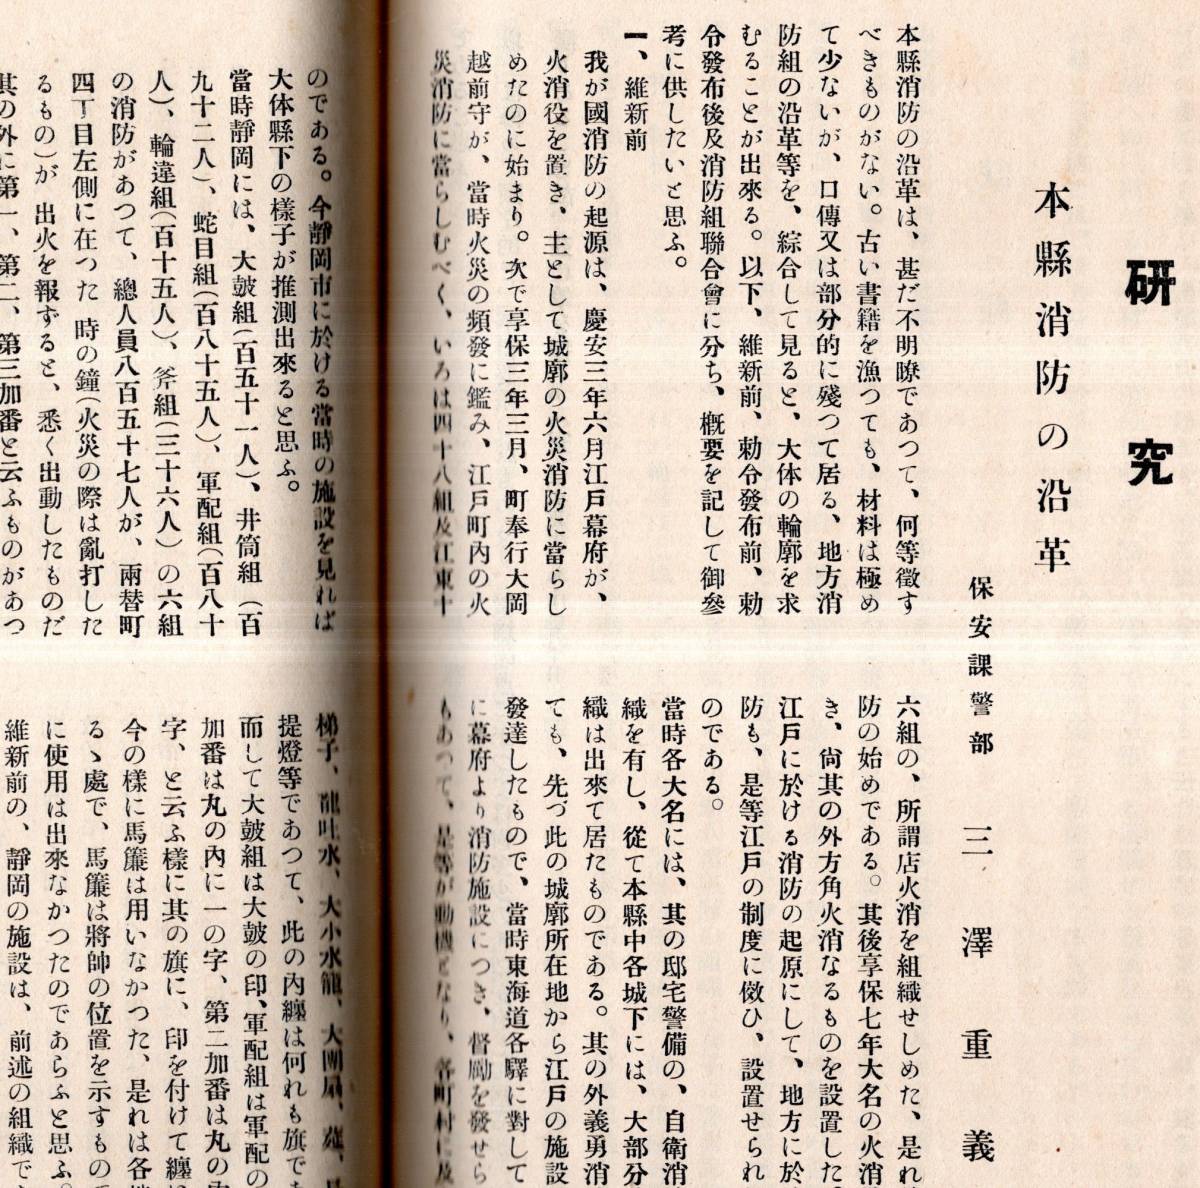 研究
本縣消防の沿革
保安課警部　三澤重義
本縣消防の沿革は、甚だ不明瞭であつて、何等徵す
べきものがない。古い書籍を漁つても、材料は極め
て少ないが、口傳又は部分的に殘つて居る、地方消
防組の沿革等を、綜合して見ると、大体の輪廓を求
むることが出來る。以下、維新前、勅令發布前、勅
令發布後及消防組聯合會に分ち、概要を記して御參
考に供したいと思ふ。
一、維新前
我が國消防の起源は、慶安三年六月江戸幕府が、
火消役を置き、主として城廓の火災消防に當らし
めたのに始まり。次で享保三年三月、町奉行大岡
越前守が、當時火災の頻發に鑑み、江戸町內の火
災消防に當らしむべく、いろは四十八組及江東十
六組の、所謂店火消を組織せしめた、是れ
防の始めである。其後享保七年大名の火消
き、尙其の外方角火消なるものを設置した
江戸に於ける消防の起原にして、地方に於
防も、是等江戸の制度に傚ひ、設置せられ
のである。
當時各大名には、其の邸宅警備の、自衛消
織を有し、從て本縣中各城下には、大部分
織は出來て居たものである。其の外義勇消
ても、先づ此の城廓所在地から江戸の施設
發達したもので、當時東海道各驛に對して
に幕府より消防施設につき、督勵を發せら
もあつて、是等が動機となり、各町村に及
のである。今靜岡市に於ける當時の施設を見れば
大体縣下の樣子が推測出來ると思ふ。
當時靜岡には、大皷組(百五十一人)、井筒組(百
九十二人)、蛇目組(百八十五人)、軍配組(百八十
人)、輪違組(百十五人)、斧組(三十六人)の六組
の消防があつて、總人員八百五十七人が、兩替町
四丁目左側に在つた 時の鐘(火災の際は亂打した
るもの)が 出火を報ずると、悉く出動したものだ
其の外に第一、第二、第三加番と云ふものがあつ
梯子、龍吐水、大小水籠、大團扇、
提燈等であつて、此の內纏は何れも旗であ
而して大皷組は大皷の印、軍配組は軍配の
加番は丸の內に一の字、第二加番は丸の內
字、と云ふ樣に其の旗に、印を付けて纏に
今の樣に馬簾は用いなかつた、是れは各地
るゝ處で、馬簾は將帥の位置を示すもので
に使用は出來なかつたのであらふと思ふ。
維新前の、靜岡の施設は、前述の組織で